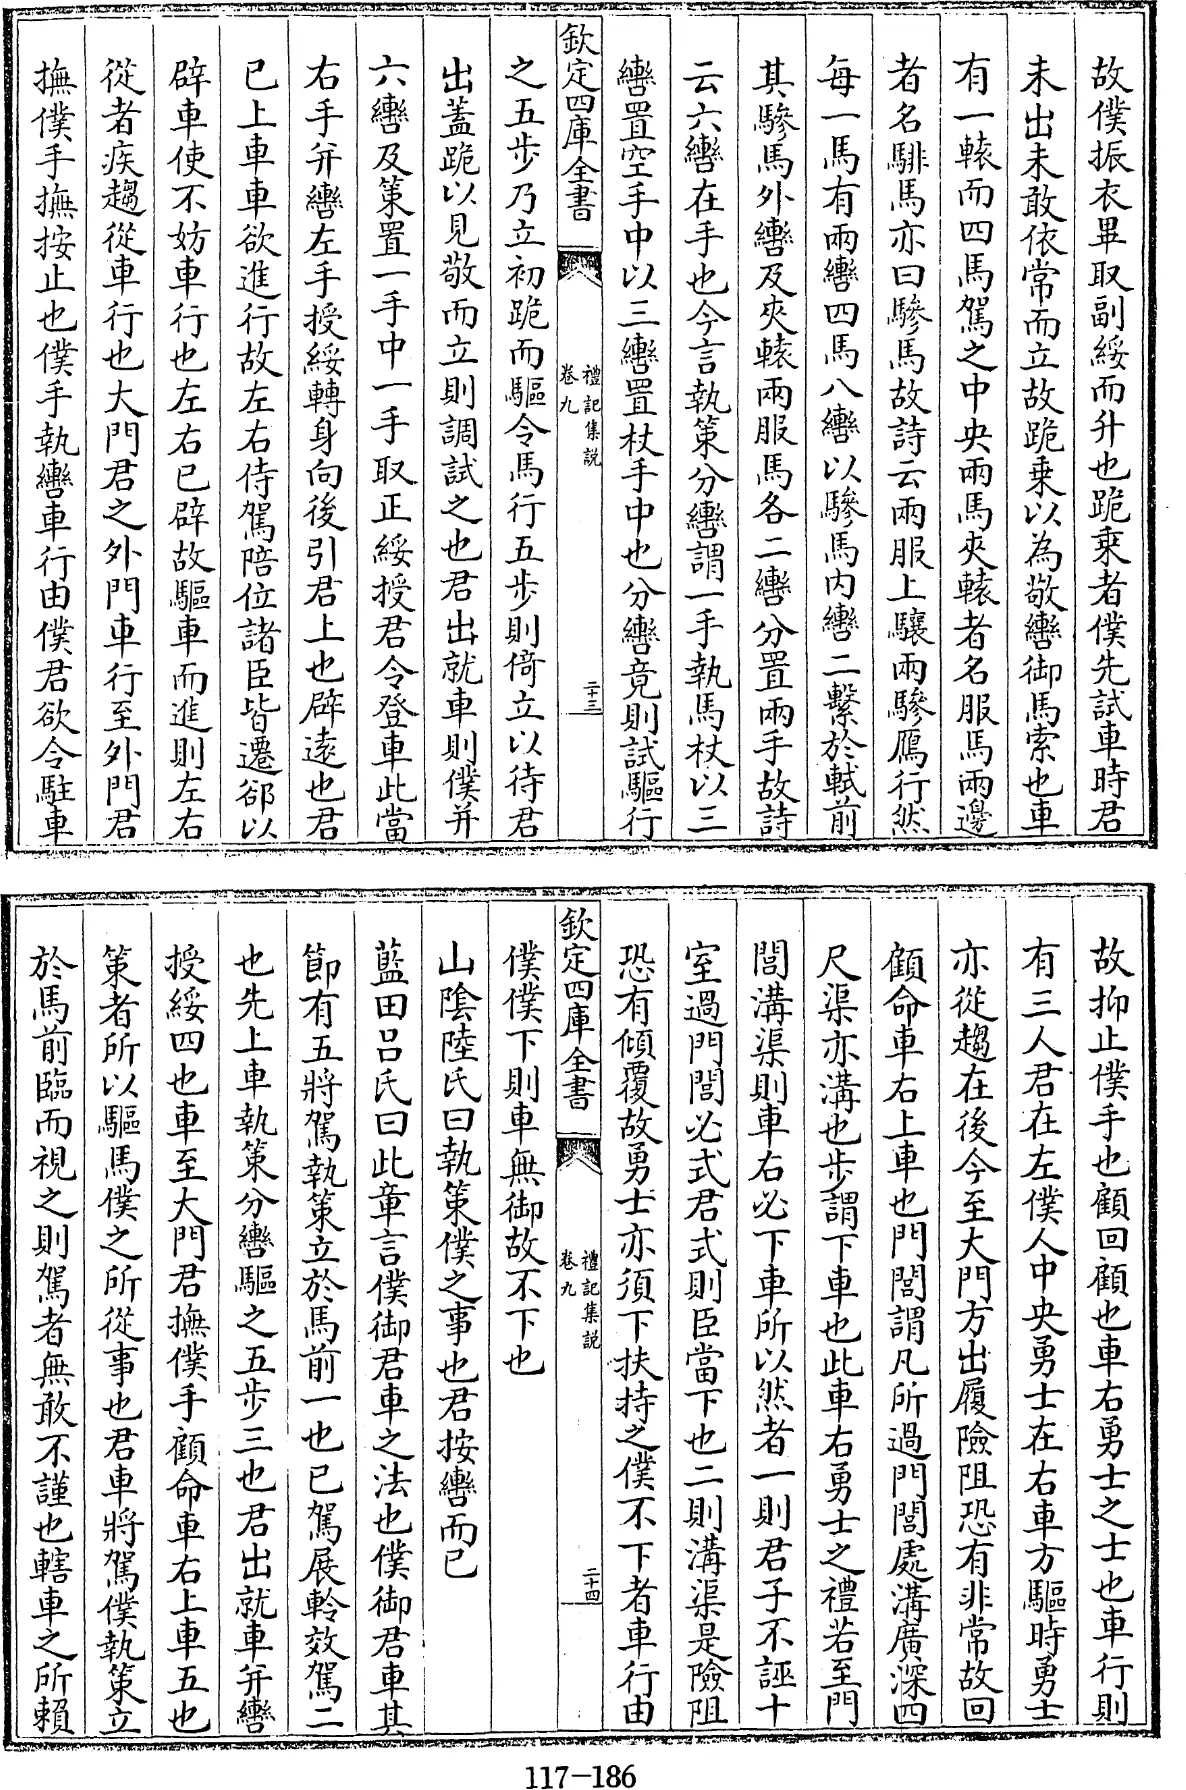 故僕振衣畢取副綏而升也跪乘者僕先試車時君
未出未敢依常而立故跪乘以為敬轡御馬索也車
有一轅而四馬駕之中央兩馬夾轅者名服馬兩邊
者名騑馬亦曰驂馬故詩云兩服上驤兩驂鴈行然
每一馬有兩轡四馬八轡以驂馬内轡二繫於軾前
其驂馬外轡及夾轅兩服馬各二轡分置兩手故詩
云六轡在手也今言執策分轡謂一手執馬杖以三
轡置空手中以三轡置杖手中也分轡竟則試驅行
欽定四庫全書
禮記集説
卷九
二十三
之五步乃立初跪而驅令馬行五步則倚立以待君
出蓋跪以見敬而立則調試之也君出就車則僕并
六轡及策置一手中一手取正綏授君令登車此當
右手并轡左手授綏轉身向後引君上也辟逺也君
已上車車欲進行故左右侍駕陪位諸臣皆遷郤以
辟車使不妨車行也左右已辟故驅車而進則左右
從者疾趨從車行也大門君之外門車行至外門君
撫僕手撫按止也僕手執轡車行由僕君欲令駐車
故抑止僕手也顧回顧也車右勇士之士也車行則
有三人君在左僕人中央勇士在右車方驅時勇士
亦從趨在後今至大門方出履險阻恐有非常故回
顧命車右上車也門閭謂凡所過門閭處溝廣深四
尺渠亦溝也步謂下車也此車右勇士之禮若至門
閭溝渠則車右必下車所以然者一則君子不誣十
室過門閭必式君式則臣當下也二則溝渠是險阻
恐有傾覆故勇士亦須下扶持之僕不下者車行由
欽定四庫全書
禮記集説
卷九
二十四
僕僕下則車無御故不下也
山隂陸氏曰執策僕之事也君按轡而已
藍田吕氏曰此章言僕御君車之法也僕御君車其
節有五將駕執策立於馬前一也已駕展軨效駕二
也先上車執策分轡驅之五步三也君出就車并轡
授綏四也車至大門君撫僕手顧命車右上車五也
策者所以驅馬僕之所從事也君車將駕僕執策立
於馬前臨而視之則駕者無敢不謹也轄車之所賴
117-186